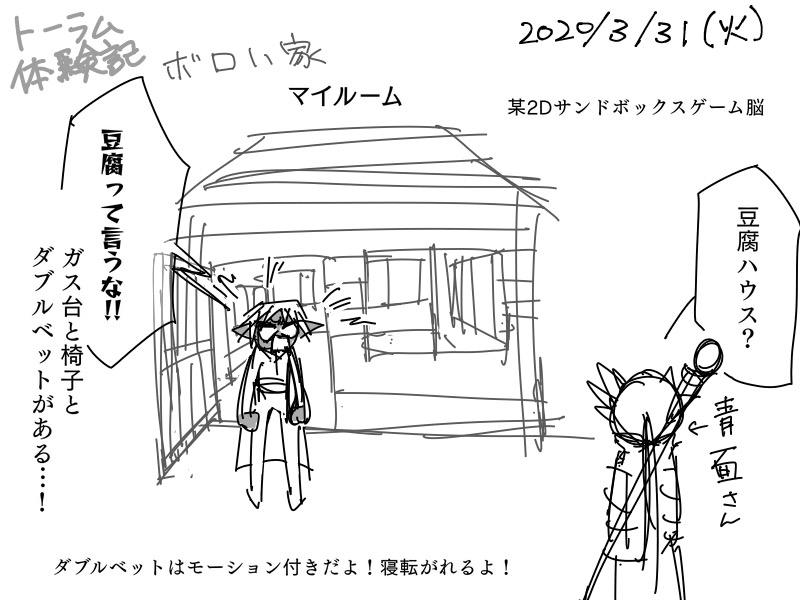 トーラム
体験記
ボロい家
2020/3/31(火)
マイルーム
某2Dサンドボックスゲーム脳
豆腐ハウス?
豆腐って言うな!!
ガス台と椅子と
ダブルベットがある…!
青面さん
ダブルベットはモーション付きだよ!寝転がれるよ!